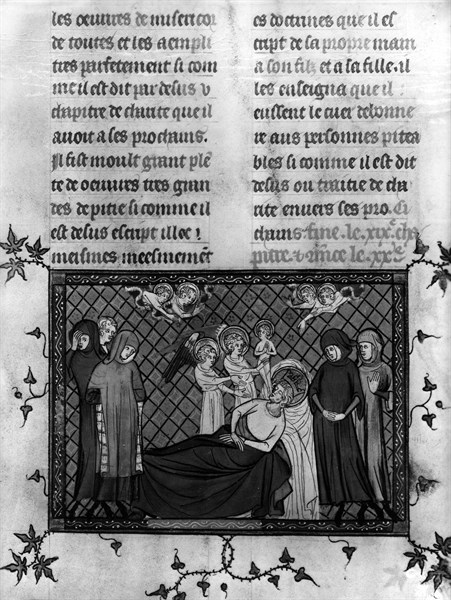 les oeuures de misericor
de toutes et les acmpli
tres parfetement si com
me il est dit par desus v
chapitre de charite que il
auoit a ses prochains.
Il fist moult grant plen
te de oeuures tres gran
des de pitie si comme il
est desus escript illec i
meismes meesmement
es doctrines que il es
cript de sa propre main
a son filz et a sa fille. il
les enseigna que il
eussent le cuer debonne
re aus personnes pitea
bles si comme il est dit
desus ou traitie de cha
rite enuers ses pro
chains fine le xixe. cha
pitre. commence le xxe.